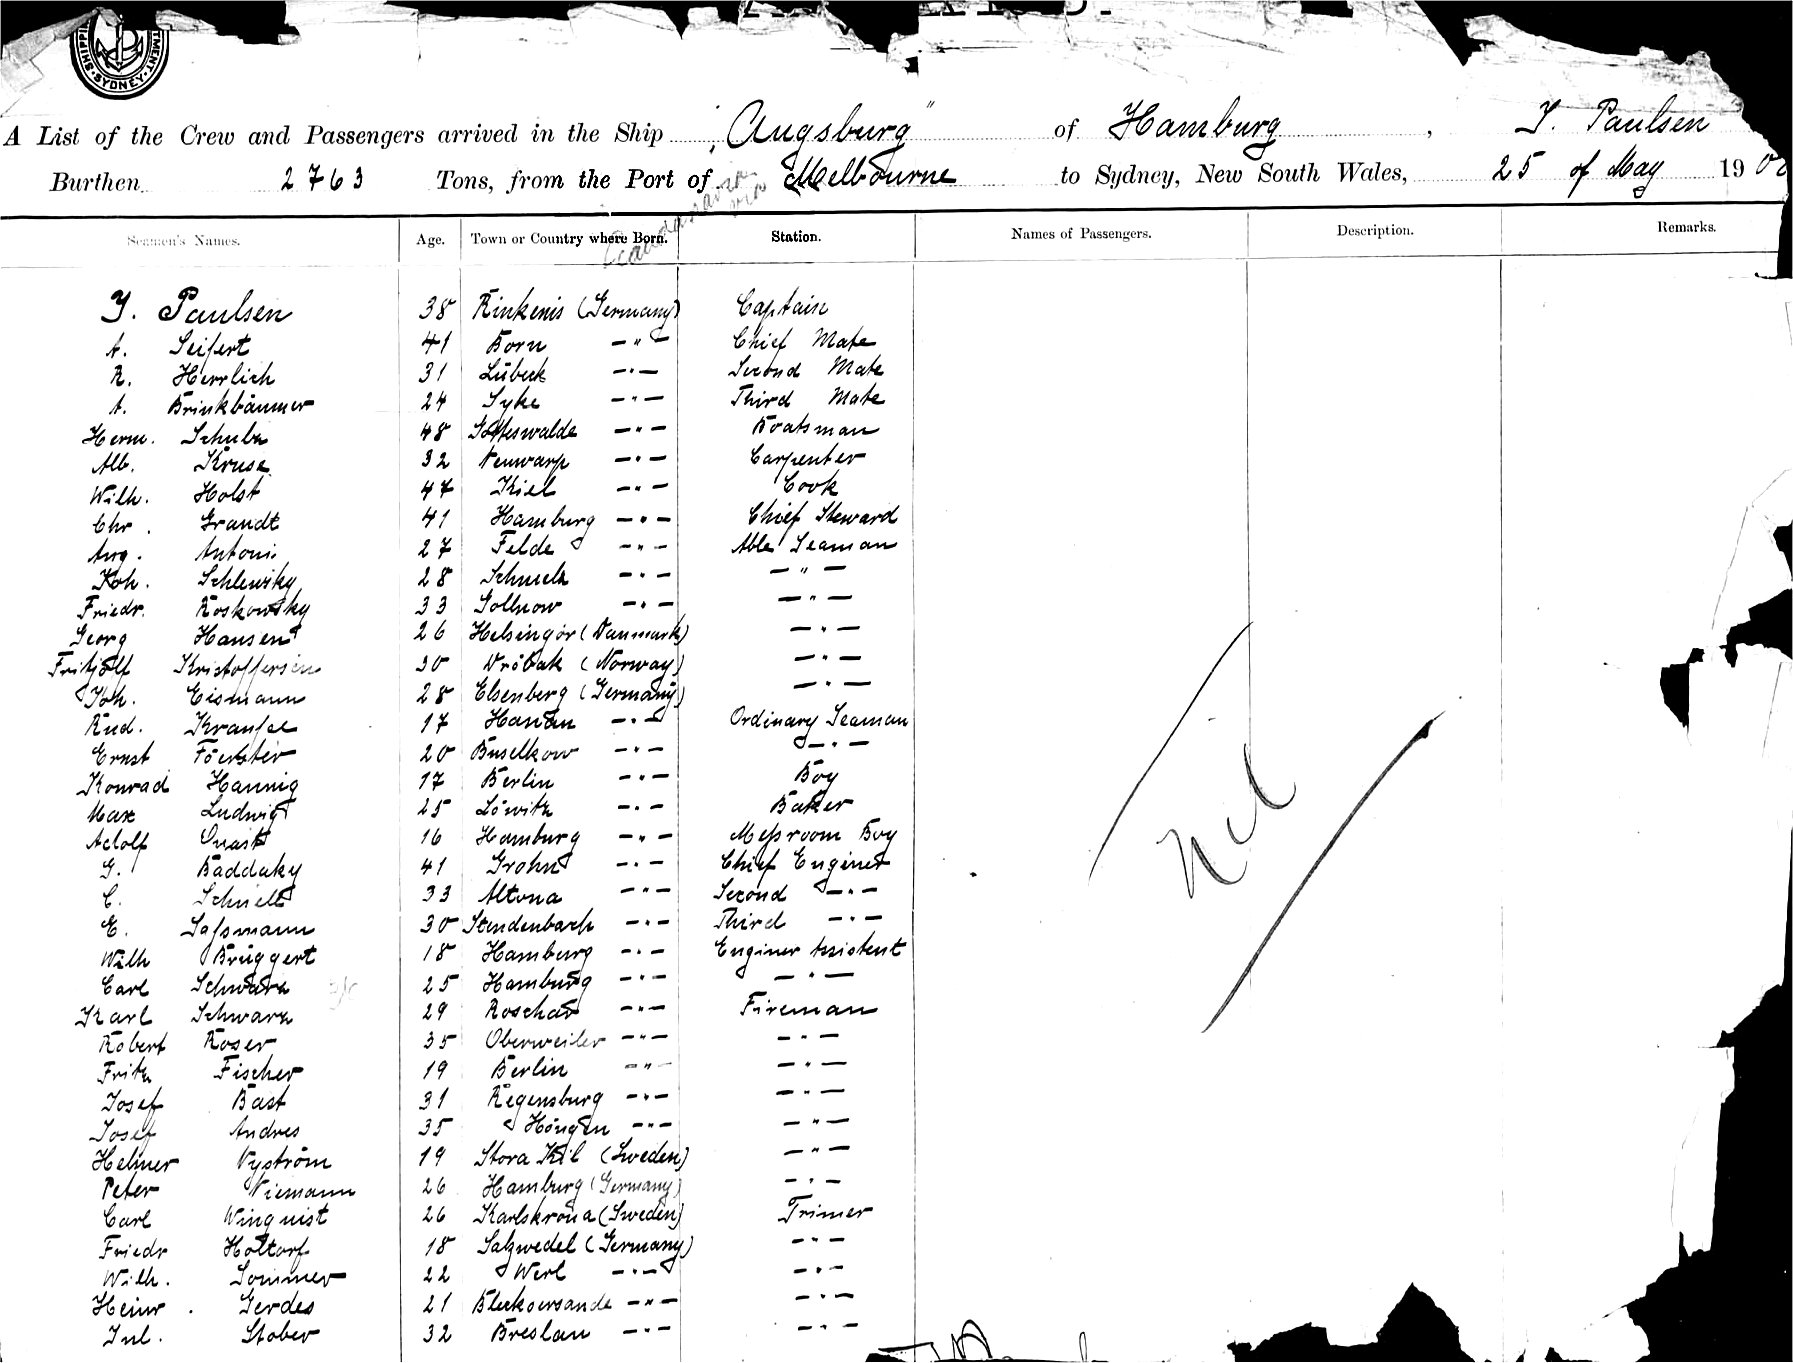 SHIPPI
TMENT
SYDNEY
A List of the Crew and Passengers arrived in the Ship "Augsburg" of Hamburg, J. Paulsen
Burthen 2763 Tons, from the Port of Melbourne to Sydney, New South Wales, 25 of May 190
via
Seamen's Names. Age. Town or Country where Born. Station. Names of Passengers. Description. Remarks.
J. Paulsen 38 Rinkenis (Germany) Captain
A. Seifert 41 Born -"- Chief Mate
R. Herrlich 31 Lübeck -"- Second Mate
A. Brinkbäumer 24 Syke -"- Third Mate
Herm. Schulz 48 Gotteswalde -"- Boatsman
Alb. Kruse 32 Neuwarp -"- Carpenter
Wilh. Holst 47 Kiel -"- Cook
Chr. Grandt 41 Hamburg -"- Chief Steward
Aug. Antoni 27 Felde -"- Able Seaman
Joh. 28 Schmelz -"- -"-
Friedr. Koskowsky 33 Gollnow -"- -"-
Georg Hansen 26 Helsingör (Danmark) -"-
Fritjolf Kristoffersen 30 Dröbak (Norway) -"-
Joh. Eismann 28 Elsenberg (Germany) -"-
Rud. 17 Hanau -"- Ordinary Seaman
Ernst Förster 20 Buselkow -"- -"-
Konrad Hannig 17 Berlin -"- Boy
Max Ludwig 25 Löwitz -"- Baker
Adolf Quast 16 Hamburg -"- Messroom Boy
G. Baddaky 41 Grohn -"- Chief Enginer
C. Schnell 33 Altona -"- Second -"-
E. Sassmann 30 Stendenbach -"- Third -"-
Wilh Brüggert 18 Hamburg -"- Enginer Assistent
Carl Schwarz 25 Hamburg -"- -"-
Karl Schwarz 29 Roschau -"- Fireman
Robert Roser 35 Oberweiler -"- -"-
Fritz Fischer 19 Berlin -"- -"-
Josef Bast 31 Regensburg -"- -"-
Josef Andres 35 Höngen -"- -"-
Helmer Nyström 19 Stora Kil (Sweden) -"-
Peter Niemann 26 Hamburg (Germany) -"-
Carl Winquist 26 Karlskrona (Sweden) Trimer
Friedr Holtorf 18 Salzwedel (Germany) -"-
Wilh. Sommer 22 Werl -"- -"-
Heinr. Gerdes 21 -"- -"-
Jul. Stober 32 Breslau -"- -"-
Nil